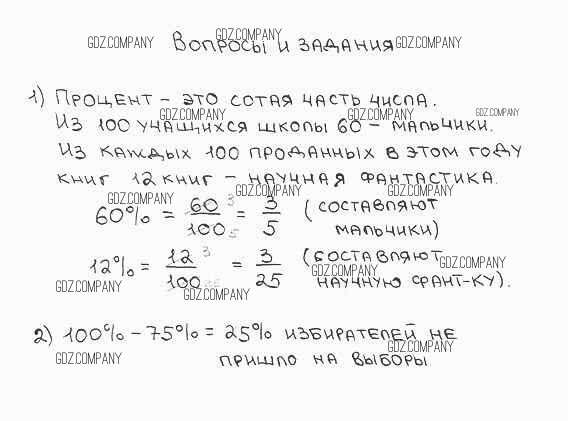 GDZ.COMPANY Вопросы и задания GDZ.COMPANY GDZ.COMPANY
1) Процент – это сотая часть числа.
GDZ.COMPANY GDZ.COMPANY GDZ.COMPANY
Из 100 учащихся школы 60 – мальчики.
Из каждых 100 проданных в этом году
книг 12 книг – научная фантастика.
GDZ.COMPANY GDZ.COMPANY GDZ.COMPANY
60% = 60/100 = 3/5 (составляют
мальчики)
12% = 12/100 = 3/25 (составляют
GDZ.COMPANY GDZ.COMPANY
научную фант-ку).
GDZ.COMPANY GDZ.COMPANY
2) 100% – 75% = 25% избирателей не
GDZ.COMPANY GDZ.COMPANY
пришло на выборы